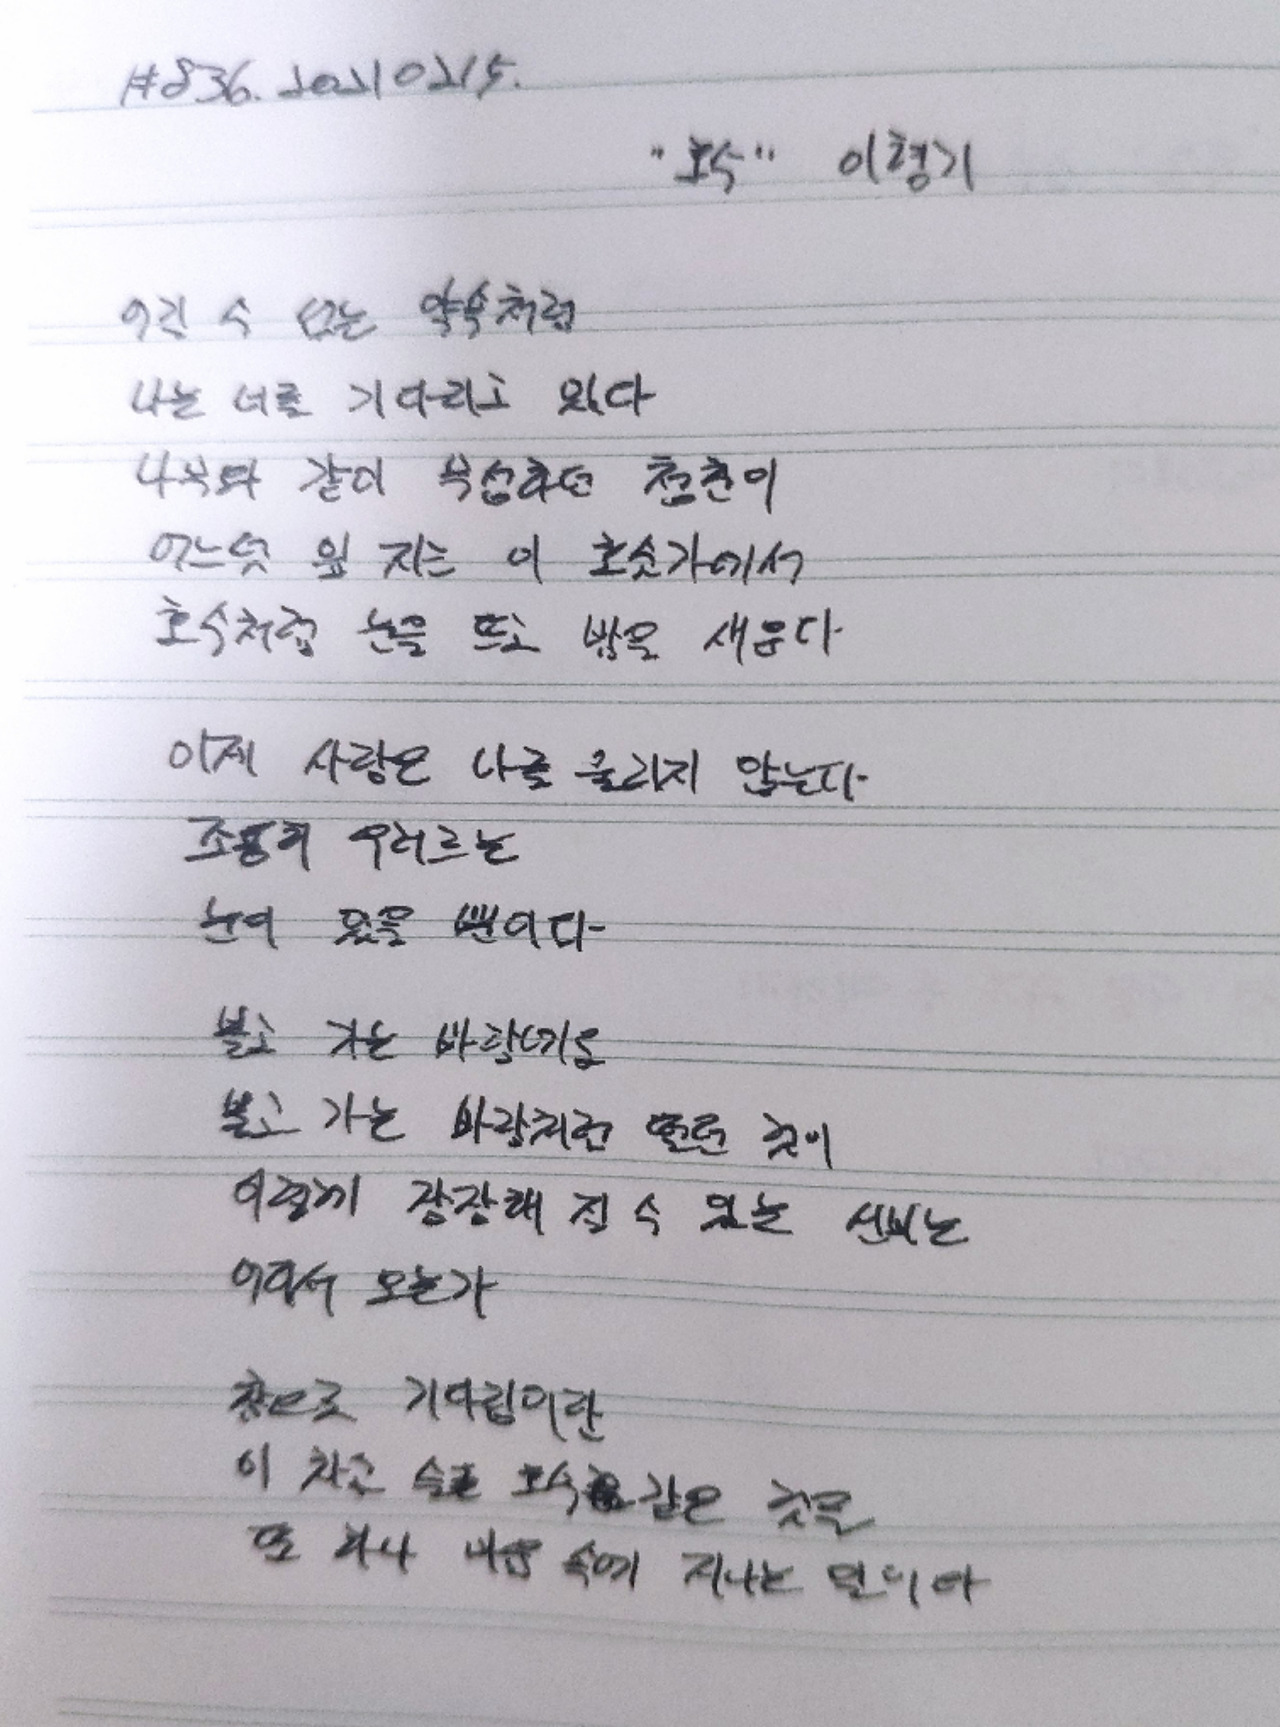 #836. 20210215.
"호수" 이형기
어길 수 없는 약속처럼
나는 너를 기다리고 있다
나무와 같이 무성하던 청춘이
어느덧 잎 지는 이 호숫가에서
호수처럼 눈을 뜨고 밤을 새운다
이제 사랑은 나를 울리지 않는다
조용히 우러르는
눈이 있을 뿐이다
불고 가는 바람에도
불고 가는 바람처럼 떨던 것이
이렇게 잠잠해 질 수 있는 신비는
어디서 오는가
참으로 기다림이란
이 차고 슬픈 호수 같은 것을
또 하나 마음 속에 지니는 일이다